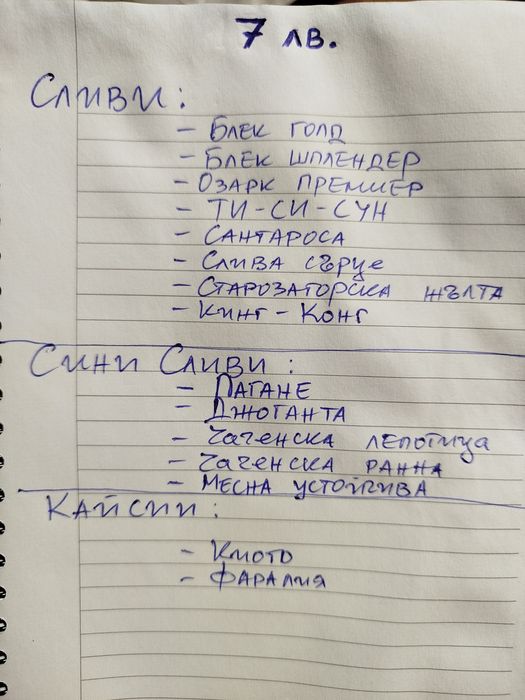 7 лв.
Сливи:
- Блек голд
- Блек шплендер
- Озарк премиер
- Ти-си-сун
- Сантароса
- Слива сърце
- Старозаторска жълта
- Кинг-Конг
Сини сливи:
- Пагане
- Джоганта
- Чаченска лепотица
- Чаченска ранна
- Месна устойчива
Кайсии:
- Кмото
- Фаралия